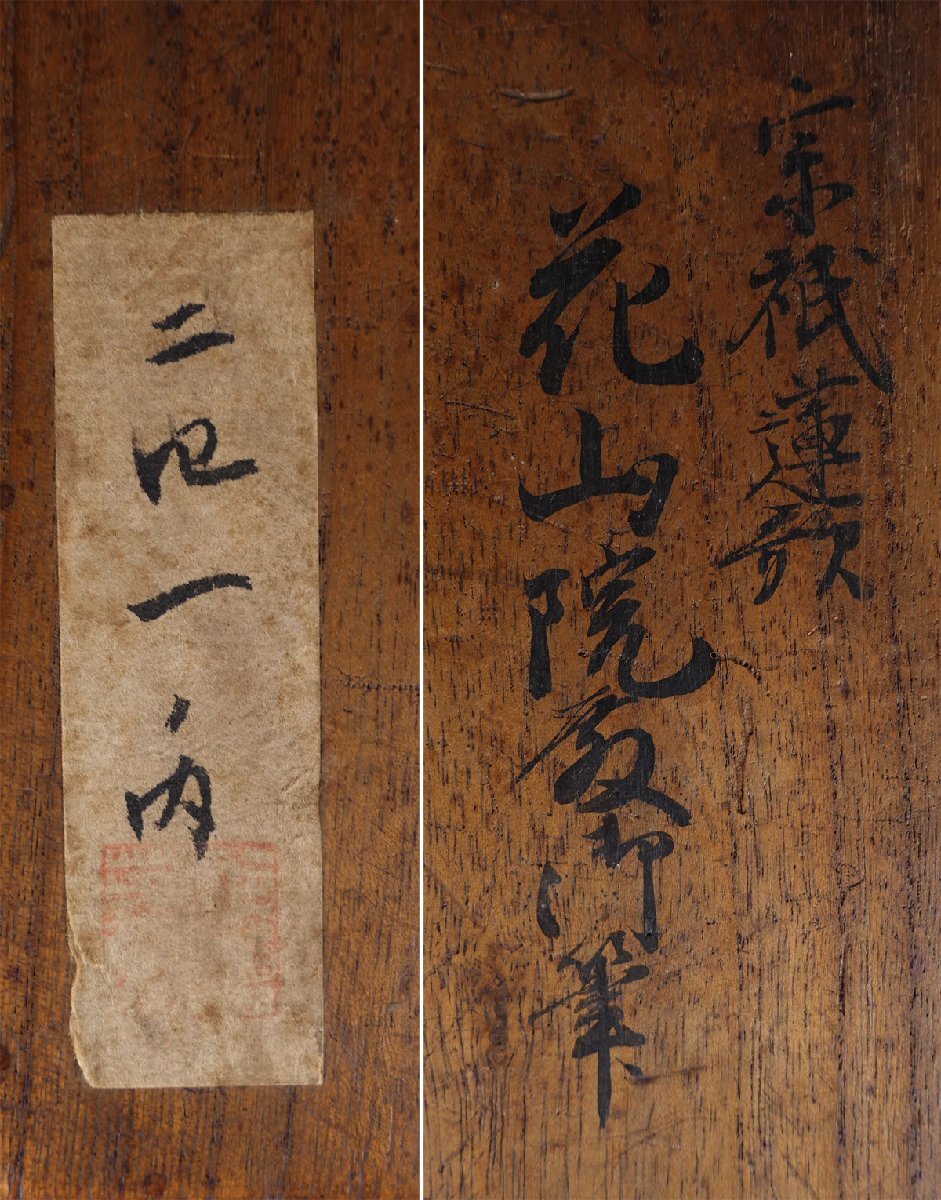 宗祇蓮歌
花山院殿御筆
二四一ノ内